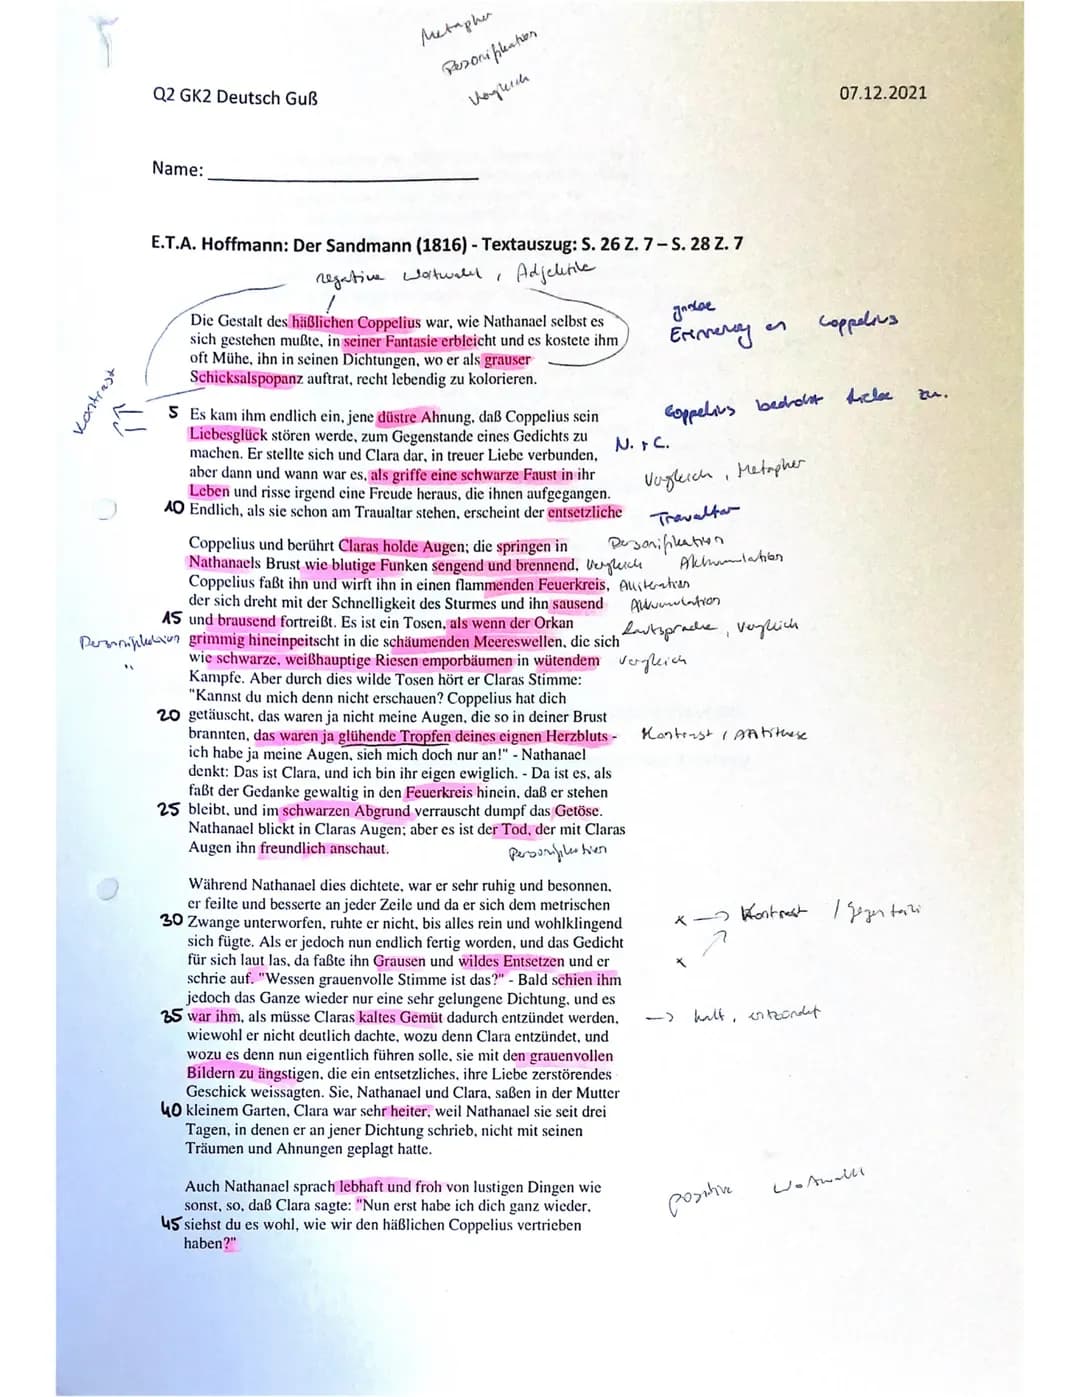 Metapher
Personifikation
Vergleich
Q2 GK2 Deutsch Guß
07.12.2021
Name:
E.T.A. Hoffmann: Der Sandmann (1816) - Textauszug: S. 26 Z. 7 – S. 28 Z. 7
negative Wortwahl, Adjektive
Die Gestalt des häßlichen Coppelius war, wie Nathanael selbst es
sich gestehen mußte, in seiner Fantasie erbleicht und es kostete ihm
Erinnerung an Coppelius
oft Mühe, ihn in seinen Dichtungen, wo er als grauser
Schicksalspopanz auftrat, recht lebendig zu kolorieren.
Kontrast
5 Es kam ihm endlich ein, jene düstre Ahnung, daß Coppelius sein
Coppelius bedroht Liebe zw.
Liebesglück stören werde, zum Gegenstande eines Gedichts zu
N. + C.
machen. Er stellte sich und Clara dar, in treuer Liebe verbunden,
aber dann und wann war es, als griffe eine schwarze Faust in ihr
Vergleich, Metapher
Leben und risse irgend eine Freude heraus, die ihnen aufgegangen.
10 Endlich, als sie schon am Traualtar stehen, erscheint der entsetzliche
Traualtar
Coppelius und berührt Claras holde Augen; die springen in
Personifikation
Nathanaels Brust wie blutige Funken sengend und brennend, Vergleich Akkumulation
Coppelius faßt ihn und wirft ihn in einen flammenden Feuerkreis, Alliteration
der sich dreht mit der Schnelligkeit des Sturmes und ihn sausend Akkumulation
15 und brausend fortreißt. Es ist ein Tosen, als wenn der Orkan
Lautsprache, Vergleich
Personifikation grimmig hineinpeitscht in die schäumenden Meereswellen, die sich
" wie schwarze, weißhauptige Riesen emporbäumen in wütendem Vergleich
Kampfe. Aber durch dies wilde Tosen hört er Claras Stimme:
"Kannst du mich denn nicht erschauen? Coppelius hat dich
20 getäuscht, das waren ja nicht meine Augen, die so in deiner Brust
brannten, das waren ja glühende Tropfen deines eignen Herzbluts - Kontrast / Antithese
ich habe ja meine Augen, sieh mich doch nur an!" - Nathanael
denkt: Das ist Clara, und ich bin ihr eigen ewiglich. - Da ist es, als
faßt der Gedanke gewaltig in den Feuerkreis hinein, daß er stehen
25 bleibt, und im schwarzen Abgrund verrauscht dumpf das Getöse.
Nathanael blickt in Claras Augen; aber es ist der Tod, der mit Claras
Augen ihn freundlich anschaut.
Personifikation
Während Nathanael dies dichtete, war er sehr ruhig und besonnen,
er feilte und besserte an jeder Zeile und da er sich dem metrischen
30 Zwange unterworfen, ruhte er nicht, bis alles rein und wohlklingend
x → Kontrast /
sich fügte. Als er jedoch nun endlich fertig worden, und das Gedicht
für sich laut las, da faßte ihn Grausen und wildes Entsetzen und er
x
schrie auf. "Wessen grauenvolle Stimme ist das?" - Bald schien ihm
jedoch das Ganze wieder nur eine sehr gelungene Dichtung, und es
35 war ihm, als müsse Claras kaltes Gemüt dadurch entzündet werden,
→ kalt, entzündet
wiewohl er nicht deutlich dachte, wozu denn Clara entzündet, und
wozu es denn nun eigentlich führen solle, sie mit den grauenvollen
Bildern zu ängstigen, die ein entsetzliches, ihre Liebe zerstörendes
Geschick weissagten. Sie, Nathanael und Clara, saßen in der Mutter
40 kleinem Garten, Clara war sehr heiter, weil Nathanael sie seit drei
Tagen, in denen er an jener Dichtung schrieb, nicht mit seinen
Träumen und Ahnungen geplagt hatte.
Auch Nathanael sprach lebhaft und froh von lustigen Dingen wie
positive Wortwahl
sonst, so, daß Clara sagte: "Nun erst habe ich dich ganz wieder,
45 siehst du es wohl, wie wir den häßlichen Coppelius vertrieben
haben?"